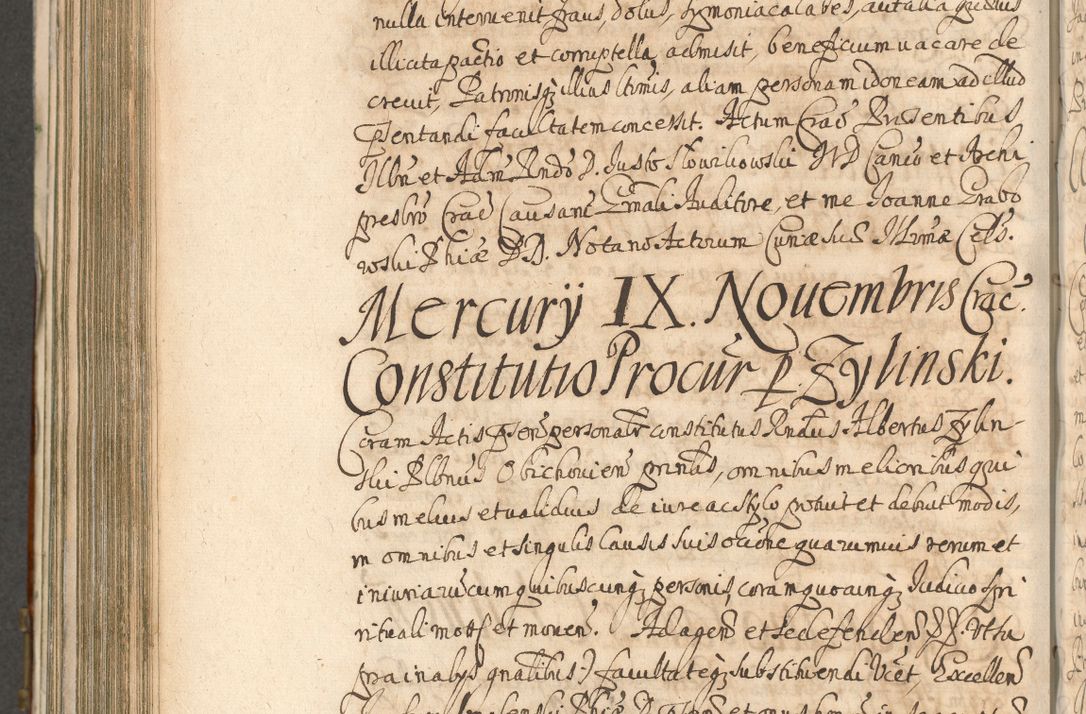 nulla interuenit fraus, dolus, symoniaca labes, aut alia quævis
illicita pactio et corruptella admisit, beneficium vacare de
creuit, Patronisq; illius ltimis, aliam personam idoneam ad illud
pſentandi facultatem concessit. Actum Crac Præsentibus
Illri et Adm Rndo D. Justo Słowikowski IVD Canco et Archi
presbro Crac Causarū Gnali Auditore, et me Joanne Grabo
wski Phiæ D. Notario Actorum Curiæ suæ Illrmæ Cels.
Mercurij IX. Nouembris Crac.
Constitutio Procur p. Zylinski.
Coram Actis pſen personalr constitutus Rndus Albertus Zylin-
ski Plbnus Obichouien prīntis, omnibus melioribus qui
bus melius et validius de iure ac stylo potuit et debuit modis,
in omnibus et singulis causis suis occõne quarumuis rerum et
iniuriarū cum quibuscunq; personis, coram quocunq; Judicio spi
rituali motis et mouen. Ad agend et se defendend PP. Vt su
pra in alijs gnalibus) facultateq; substituendi Vcet, Excellen